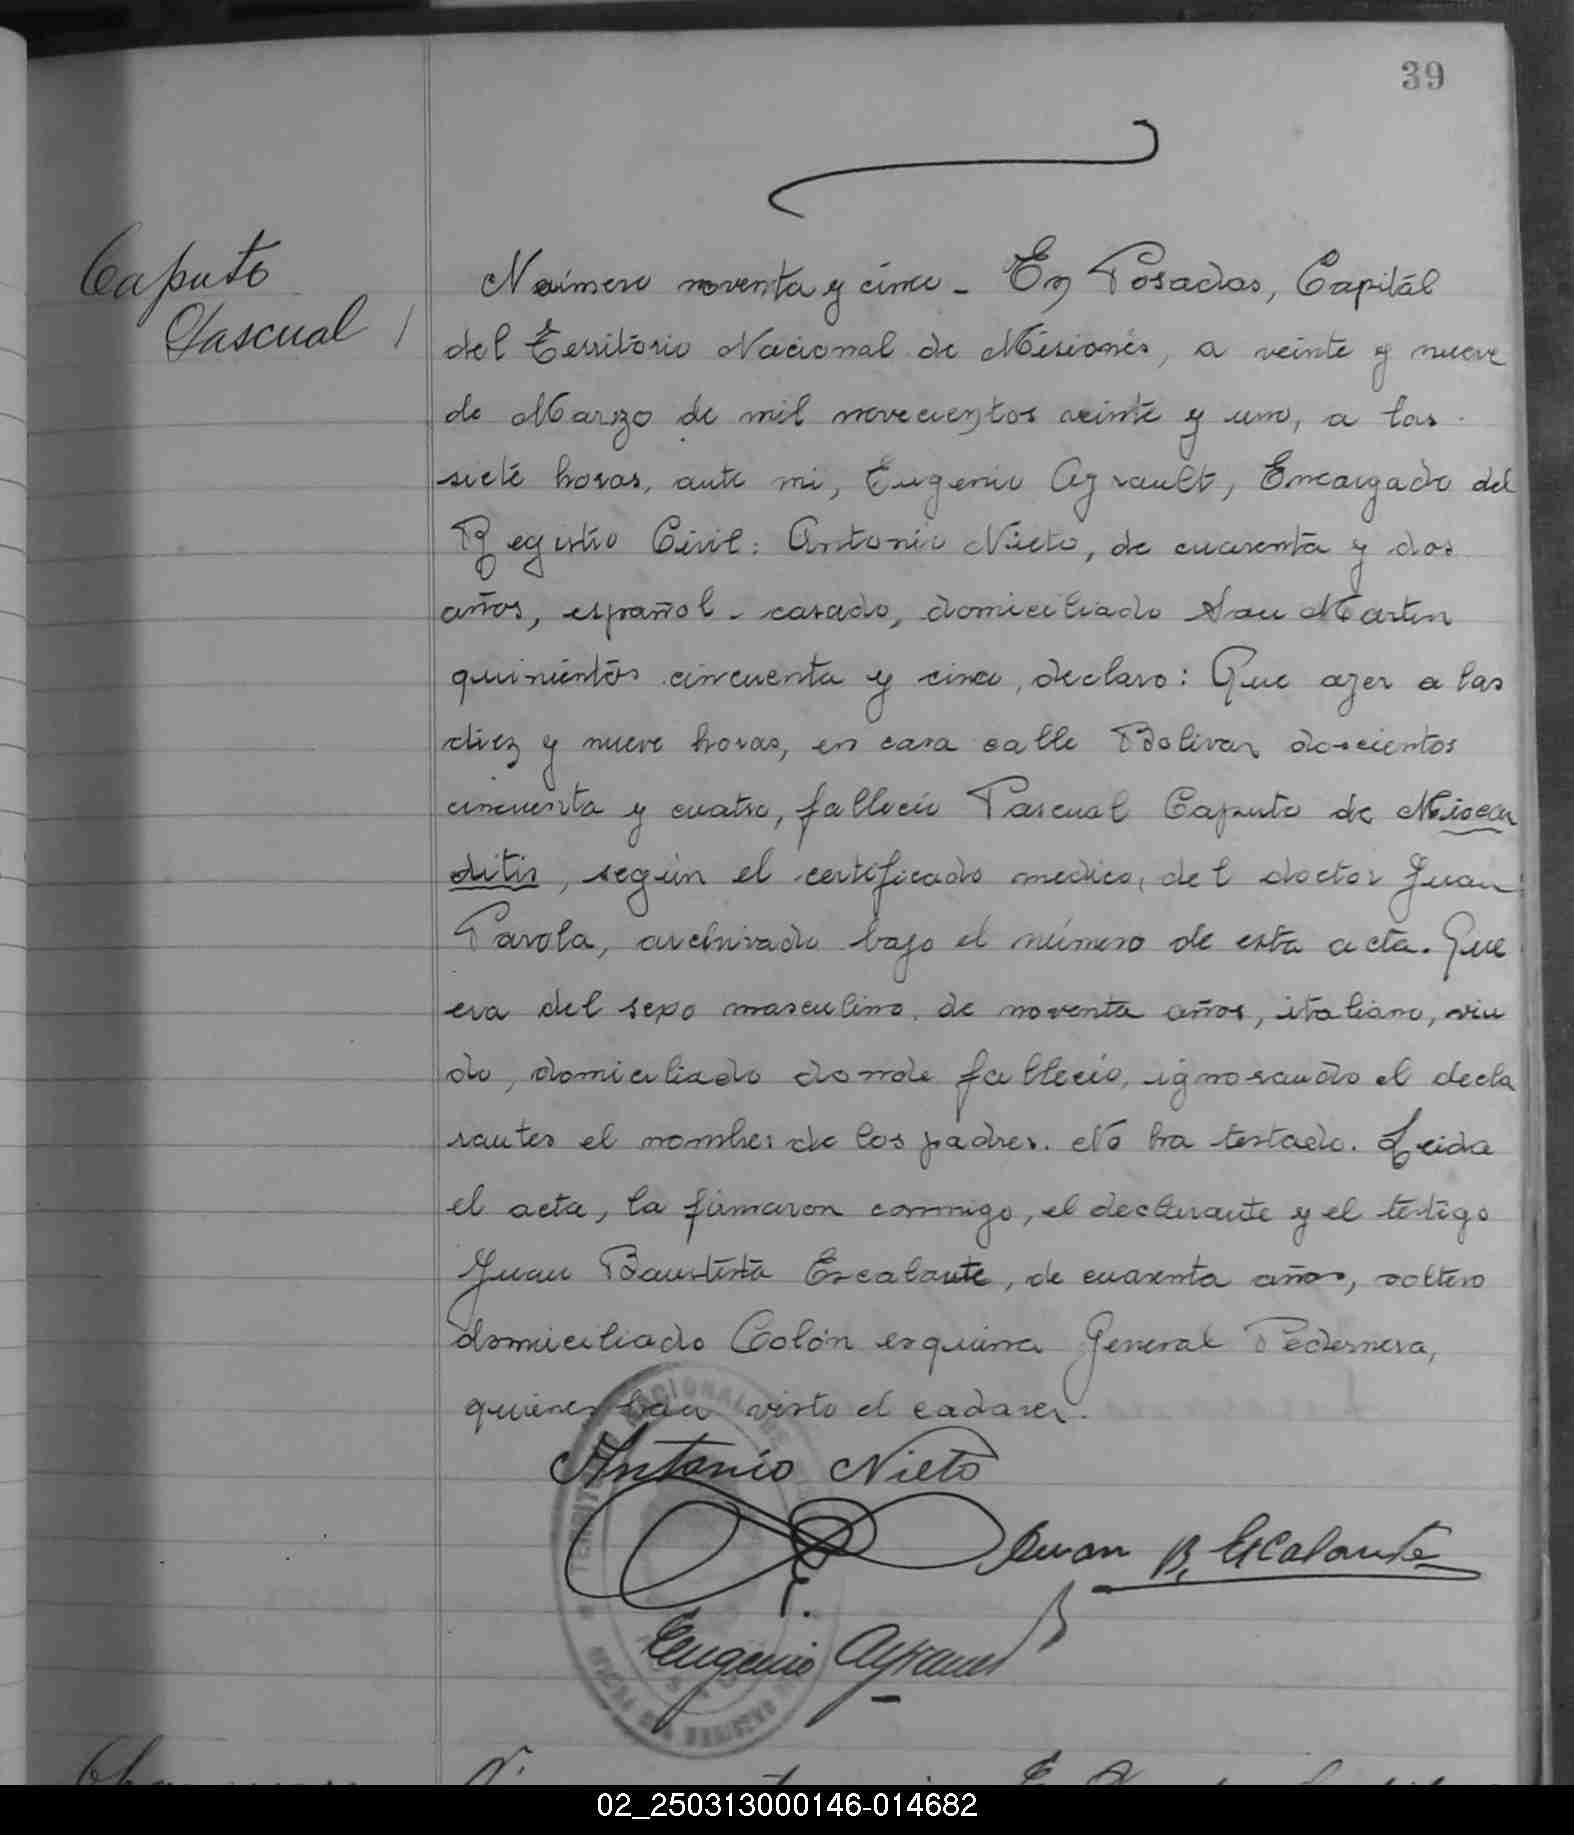 39
Caputo
Pascual /
Número noventa y cinco - En Posadas, Capitál
del Territorio Nacional de Misiones, a veinte y nueve
de Marzo de mil novecientos veinte y uno, a las
siete horas, ante mi, Eugenio Ayrault, Encargado del
Registro Civil: Antonio Nieto, de cuarenta y dos
años, español - casado, domiciliado San Martin
quinientos cincuenta y cinco, declaro: Que ayer a las
diez y nueve horas, en casa calle Bolivar doscientos
cincuenta y cuatro, falleció Pascual Caputo de Miocar
ditis, según el certificado medico, del doctor Juan
Parola, archivado bajo el número de esta acta. Que
era del sexo masculino, de noventa años, italiano, viu
do, domiciliado donde falleció, ignorando el decla
rantes el nombre de los padres. No ha testado. Leida
el acta, la firmaron conmigo, el declarante y el testigo
Juan Bautista Escalante, de cuarenta años, soltero
domiciliado Colón esquina General Pedernera,
quienes han visto el cadaver.
Antonio Nieto
Juan B. Escalante
Eugenio Ayrault
02_250313000146-014682